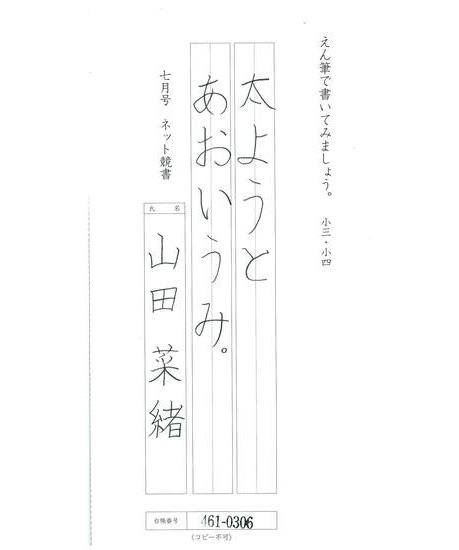 えん筆で書いてみましょう。 小三・小四
太ようと
あおいうみ。
七月号 ネット競書
氏 名
山田 菜緒
台帳番号 461-0306
(コピー不可)